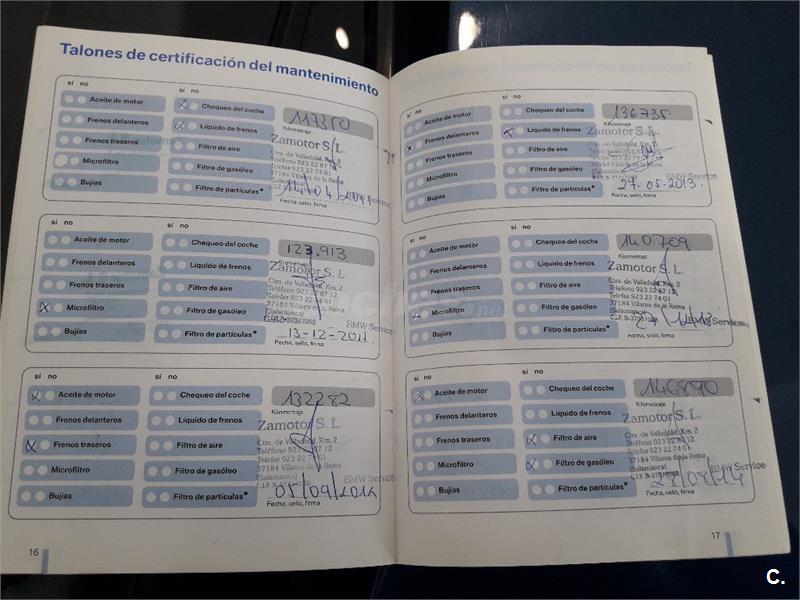 Talones de certificación del mantenimiento
sí no
sí no
Aceite de motor
Chequeo del coche
Frenos delanteros
Líquido de frenos
Frenos traseros
Filtro de aire
Microfiltro
Filtro de gasóleo
Bujías
Filtro de partículas*
117350
Kilometraje
Zamotor S. L
Ctra. de Valladolid, Km. 2
Teléfono 923 22 87 12
Telefax 923 22 74 01
37184 Villares de la Reina
(Salamanca)
BMW Service
Fecha, sello, firma
sí no
sí no
Aceite de motor
Chequeo del coche
Frenos delanteros
Líquido de frenos
Frenos traseros
Filtro de aire
Microfiltro
Filtro de gasóleo
Bujías
Filtro de partículas*
123.913
Kilometraje
Zamotor S. L
Ctra. de Valladolid, Km. 2
Teléfono 923 22 87 12
Telefax 923 22 74 01
37184 Villares de la Reina
(Salamanca)
C.I.F. B-37317088
13-12-2011
BMW Service
Fecha, sello, firma
sí no
sí no
Aceite de motor
Chequeo del coche
Frenos delanteros
Líquido de frenos
Frenos traseros
Filtro de aire
Microfiltro
Filtro de gasóleo
Bujías
Filtro de partículas*
132282
Kilometraje
Zamotor S. L
Ctra. de Valladolid, Km. 2
Teléfono 923 22 87 12
Telefax 923 22 74 01
37184 Villares de la Reina
(Salamanca)
BMW Service
05/09/2012
Fecha, sello, firma
16
sí no
sí no
Aceite de motor
Chequeo del coche
Frenos delanteros
Líquido de frenos
Frenos traseros
Filtro de aire
Microfiltro
Filtro de gasóleo
Bujías
Filtro de partículas*
136735
Kilometraje
Zamotor S. L
Ctra. de Valladolid, Km. 2
Teléfono 923 22 87 12
Telefax 923 22 74 01
37184 Villares de la Reina
(Salamanca)
27.05.2013.
BMW Service
Fecha, sello, firma
sí no
sí no
Aceite de motor
Chequeo del coche
Frenos delanteros
Líquido de frenos
Frenos traseros
Filtro de aire
Microfiltro
Filtro de gasóleo
Bujías
Filtro de partículas*
140709
Kilometraje
Zamotor S. L.
Ctra. de Valladolid, Km. 2
Teléfono 923 22 87 12
Telefax 923 22 74 01
37184 Villares de la Reina
(Salamanca)
BMW Service
Fecha, sello, firma
sí no
sí no
Aceite de motor
Chequeo del coche
Frenos delanteros
Líquido de frenos
Frenos traseros
Filtro de aire
Microfiltro
Filtro de gasóleo
Bujías
Filtro de partículas*
146890
Kilometraje
Zamotor S. L.
Ctra. de Valladolid, Km. 2
Teléfono 923 22 87 12
Telefax 923 22 74 01
37184 Villares de la Reina
(Salamanca)
BMW Service
28/08/14
Fecha, sello, firma
17
C.